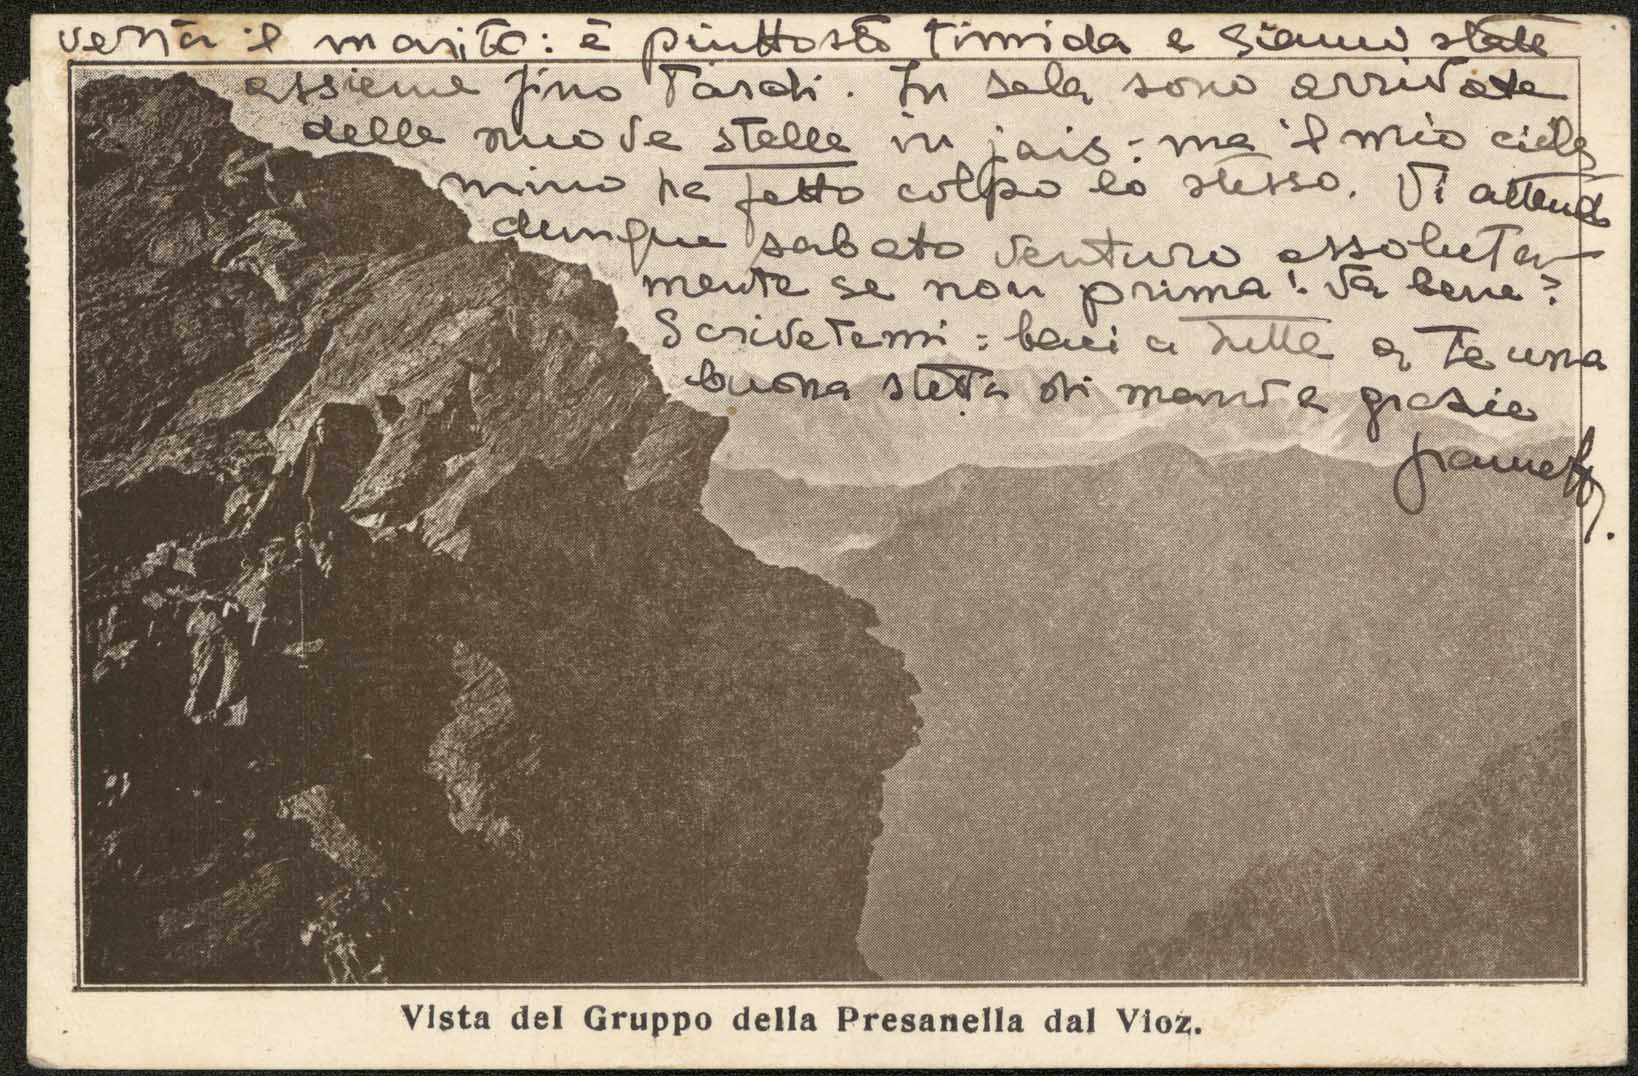 verrà il marito: è piuttosto timida e siamo state
assieme fino tardi. In sala sono arrivate
delle nuove stelle in jais: ma il mio cicla
mino ha fatto colpo lo stesso. Vi attendo
dunque sabato venturo assoluta-
mente se non prima! Va bene?
Scrivetemi: baci a tutte a te una
buona stretta di mano e grazie
Vista del Gruppo della Presanella dal Vioz.